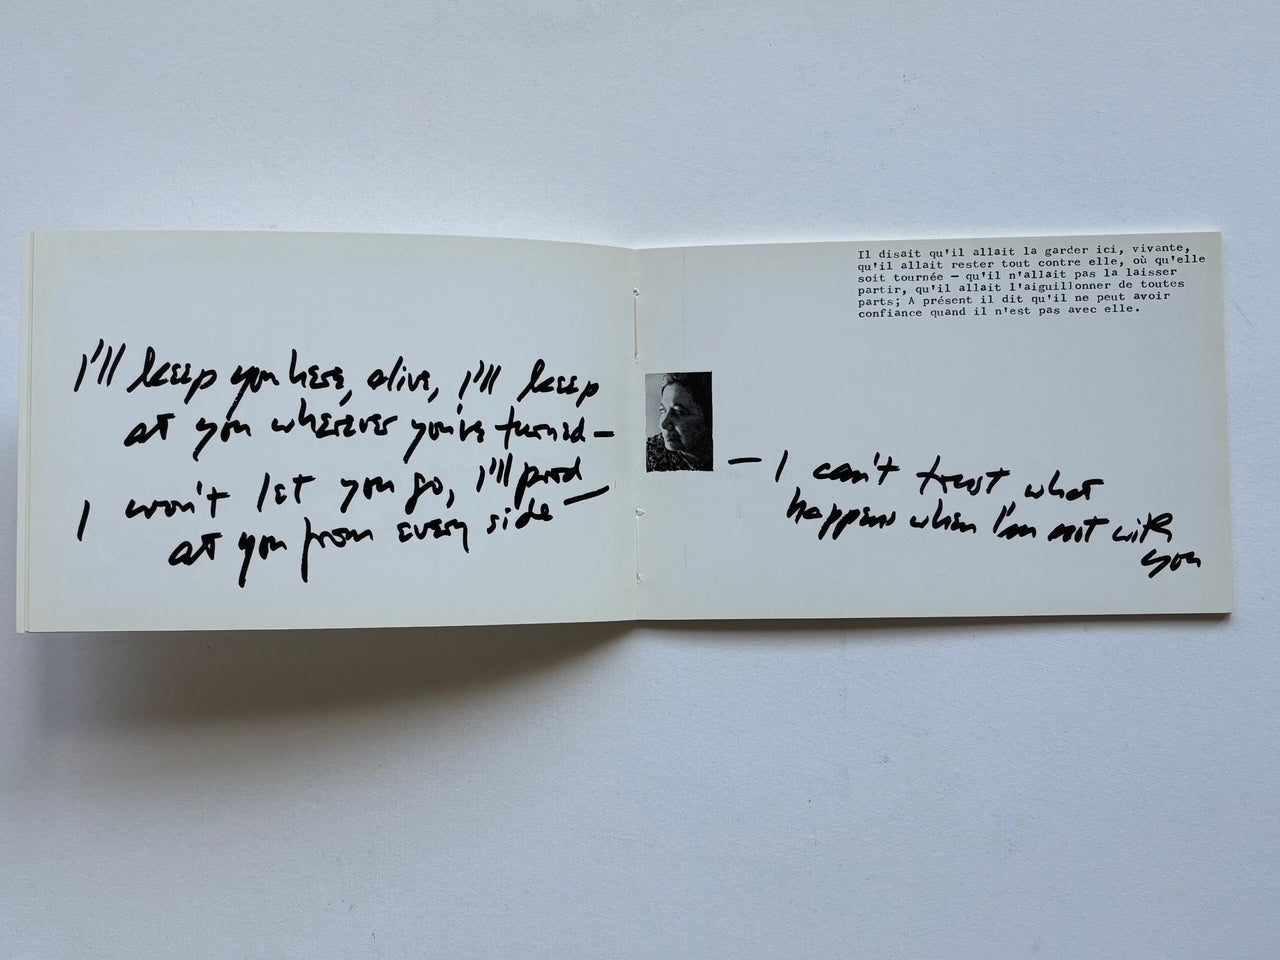 I'll keep you here, alive, I'll keep
at you wherever you've turned —
I won't let you go, I'll prod
at you from every side —
Il disait qu'il allait la garder ici, vivante,
qu'il allait rester tout contre elle, où qu'elle
soit tournée — qu'il n'allait pas la laisser
partir, qu'il allait l'aiguillonner de toutes
parts; A présent il dit qu'il ne peut avoir
confiance quand il n'est pas avec elle.
— I can't trust what
happens when I'm not with
you